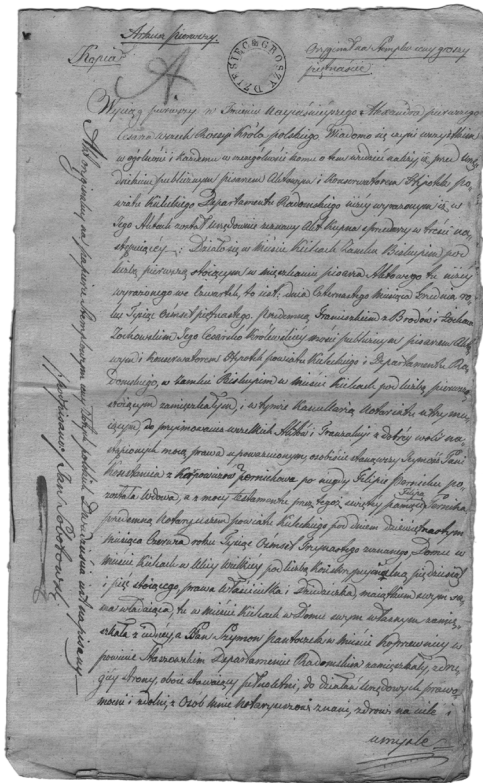 Arkusz pierwszy
Kopia
DZIESIĘĆ GROSZY
Oryginał na stemplu ceny groszy
piętnaście
Wyciąg pierwszy w Imieniu Nayiaśnieyszego Alexandra pierwszego
Cesarza Wszech Rossyi Króla polskiego. Wiadomo czyni wszystkim
w ogólności i każdemu w szczególności komu o tem wiedzieć należy iż przed Urzę
dzonym publicznym pisarzem Aktowym i Konserwatorem Hypotek po
wiatu Kieleckiego Departamentu Radomskiego niżey wyrażonym iż w
Jego Aktach został urzędownie zeznany Akt Kupna sprzedaży w treści na
stępuiący: Działo się w mieście Kielcach Zamku Biskupim pod
liczbą pierwszą stoiącym w mieszkaniu pisarza Aktowego tu niżey
wyrażonego we Czwartek, to iest: dnia Czternastego Miesiąca Grudnia ro
ku Tysiąc Ośmset piętnastego. Przedemną Franciszkiem z Brodów Zochem
Zochowskim Jego Cesarsko Królewskiey mości publicznym pisarzem Akto
wym i konserwatorem Hypotek powiatu Kieleckiego i Departamentu Ra
domskiego, w Zamku Biskupim w mieście Kielcach pod liczbą pierwszą
stoiącym zamieszkałym, i w tymże Kancellaryą Notaryatu utrzymu
iącym, do przyimowania wszelkich Aktów i Tranzakcyi z dobrey woli na
stąpionych mocą prawa upoważnionym, osobiście stanąwszy Jeymość Pani
Konstancia z Karpowiczów Czernikowa po niegdy Filipie Czerniku po
została Wdowa, a z mocy testamentu przez tegoż, świętey pamięci Filipa Czernika,
przedemną Notaryuszem powiatu Kieleckiego pod dniem dziewiętnastym
miesiąca Czerwca roku Tysiąc Ośmset Trzynastego zeznanego Domu w
mieście Kielcach w Ulicy Wielkiey pod liczbą Konskrypcyiną pięćdziesiąt
i pięć stoiącego, prawa Właścicielka i Dziedziczka, maiątkiem swym sa
ma władaiąca, tu w mieście Kielcach w Domu swym własnym zamie
szkała z iedney a Pan Szymon Pantoczek w mieście Koprzewnicy w
powiecie Staszowskim Departamencie Radomskim zamieszkały, z dru
giey strony, oboie stawaiący pełnoletni, do działań urzędowych prawo
mocni i zdolni, z Osób mnie Notaryuszowi znani, zdrowi na ciele i
umyśle
Akt oryginalny na papierze stemplowym ceny złotych polskich Dwadzieścia iest napisany
podpisano Jan Sobotowski